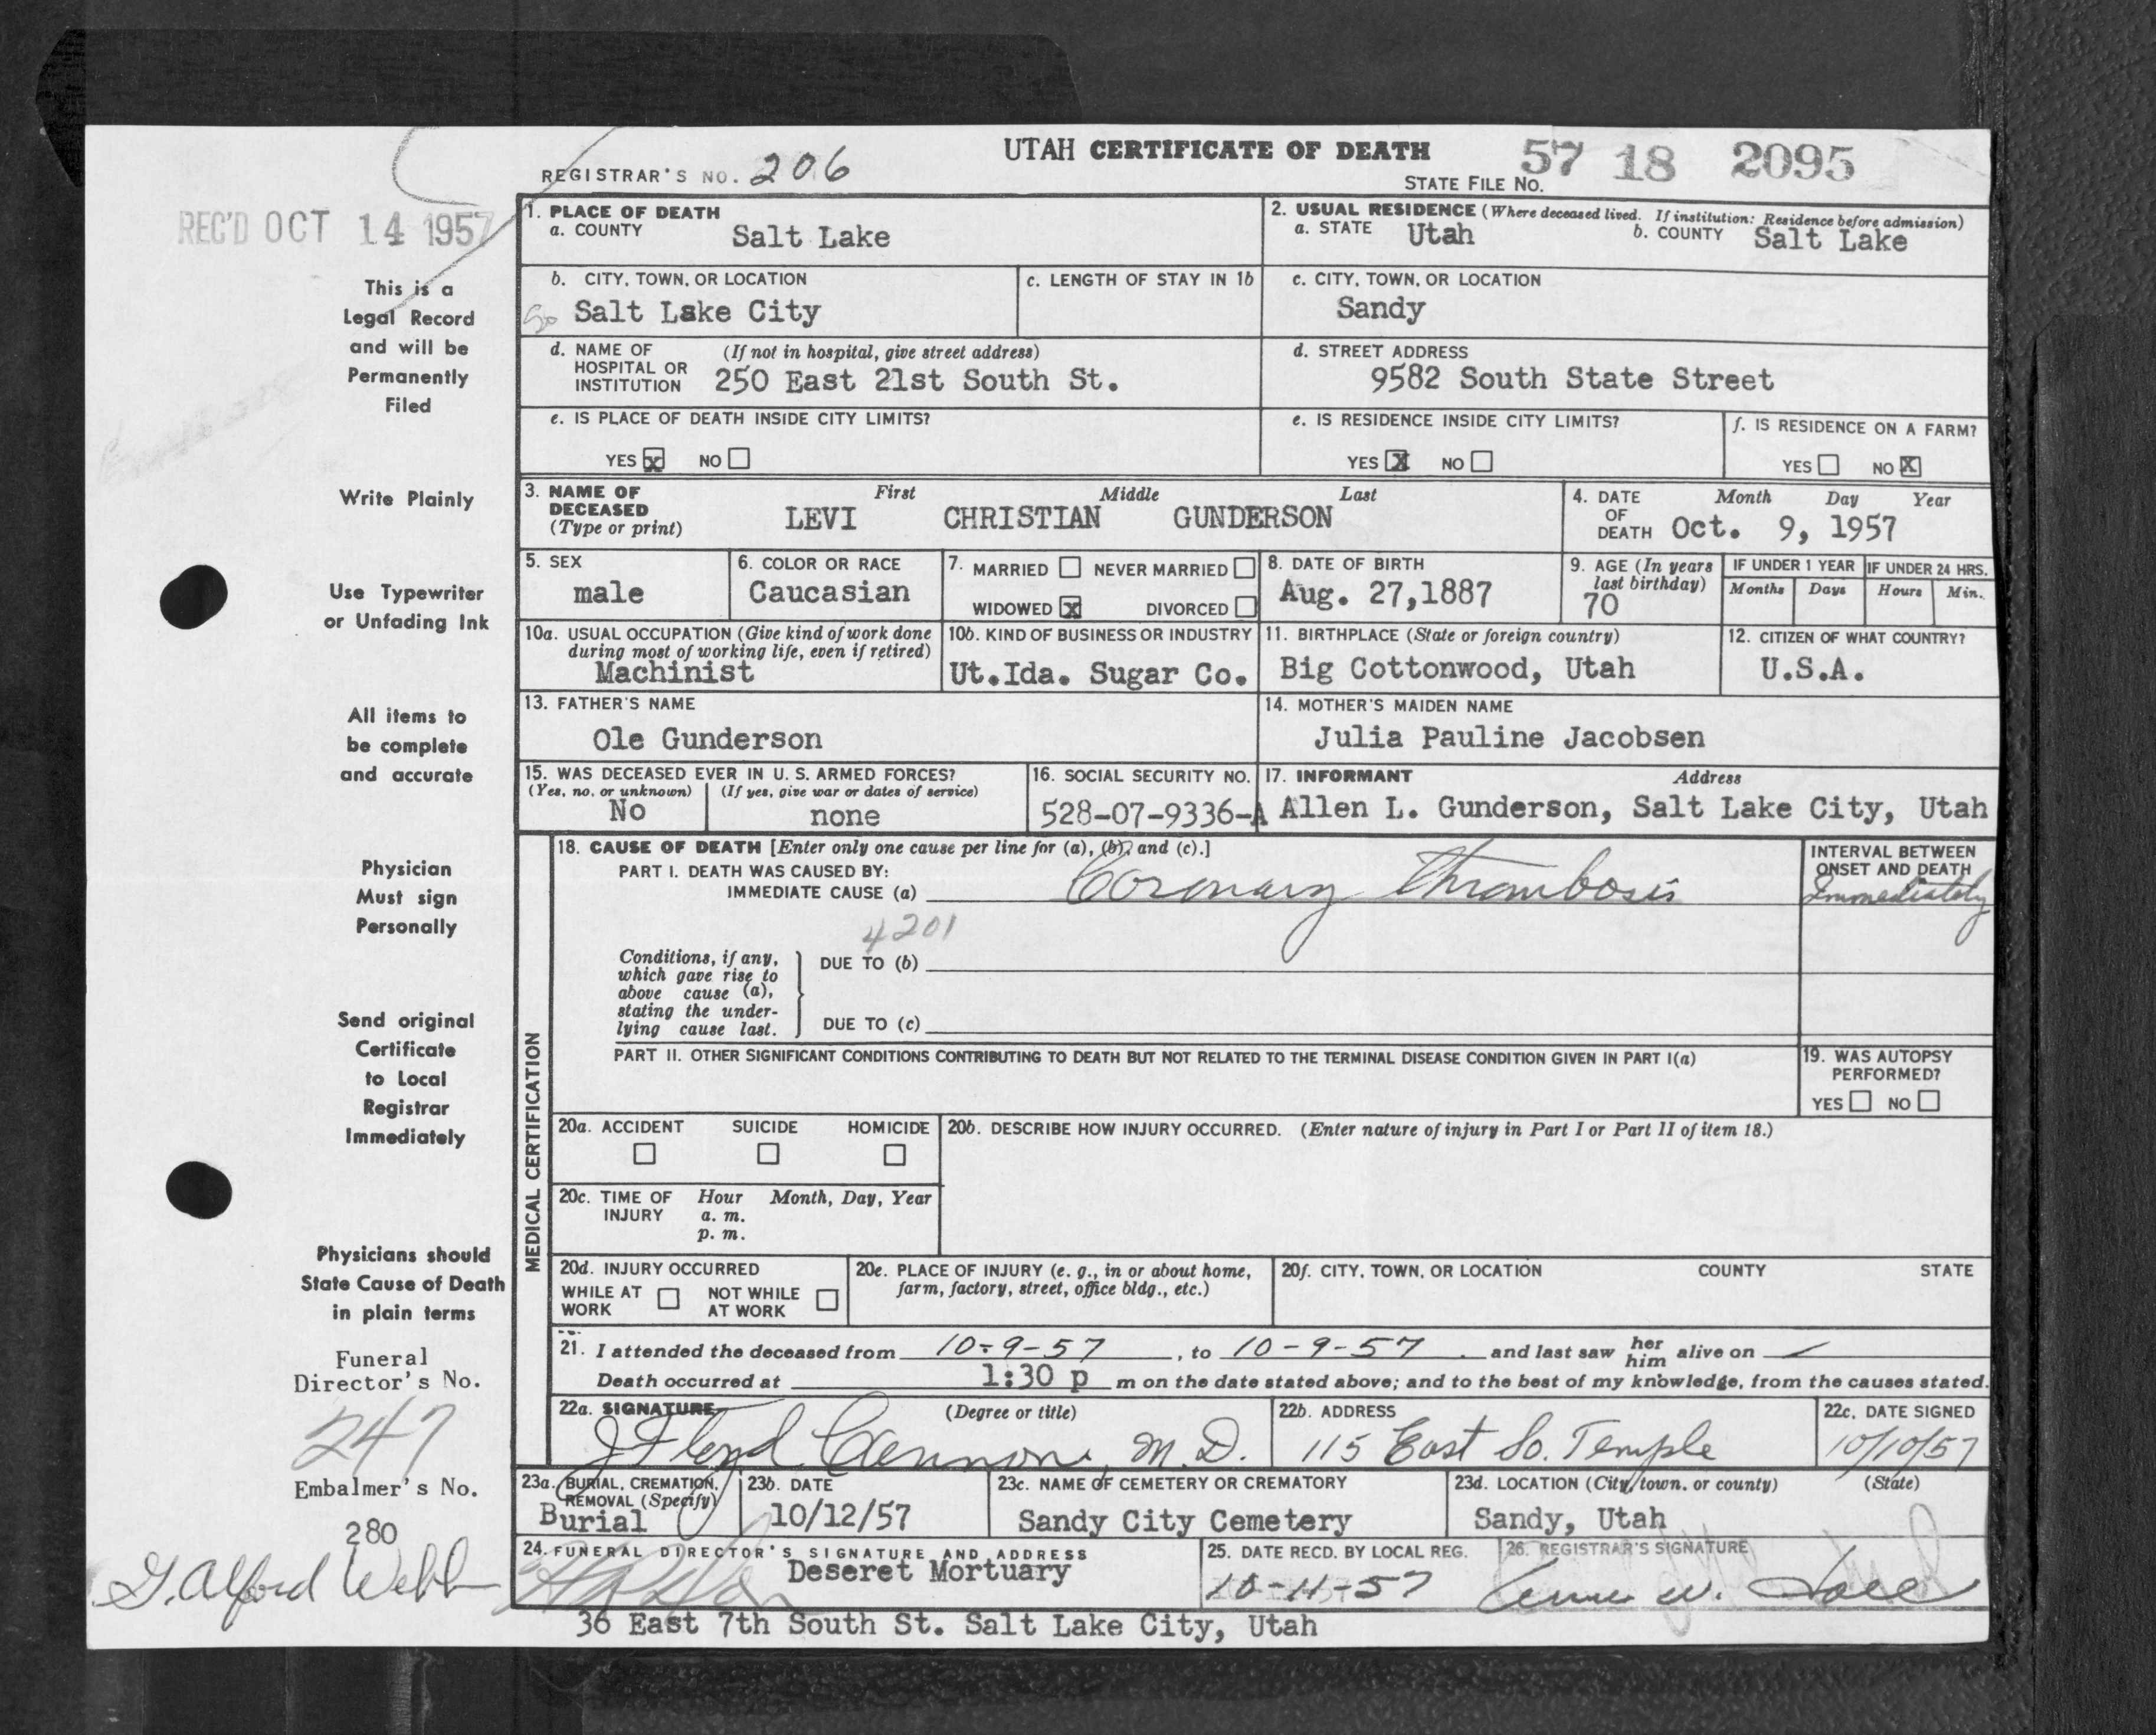 UTAH CERTIFICATE OF DEATH
REGISTRAR'S NO. 206
STATE FILE NO. 57 18 2095
REC'D OCT 14 1957
This is a
Legal Record
and will be
Permanently
Filed
Write Plainly
Use Typewriter
or Unfading Ink
All items to
be complete
and accurate
Physician
Must sign
Personally
Send original
Certificate
to Local
Registrar
Immediately
Physicians should
State Cause of Death
in plain terms
Funeral
Director's No.
247
Embalmer's No.
280
G. Alford Webb
1. PLACE OF DEATH
a. COUNTY Salt Lake
2. USUAL RESIDENCE (Where deceased lived. If institution: Residence before admission)
a. STATE Utah b. COUNTY Salt Lake
b. CITY, TOWN, OR LOCATION
Salt Lake City
c. LENGTH OF STAY IN 1b
c. CITY, TOWN, OR LOCATION
Sandy
d. NAME OF HOSPITAL OR INSTITUTION (If not in hospital, give street address)
250 East 21st South St.
d. STREET ADDRESS
9582 South State Street
e. IS PLACE OF DEATH INSIDE CITY LIMITS?
YES x NO
e. IS RESIDENCE INSIDE CITY LIMITS?
YES X NO
f. IS RESIDENCE ON A FARM?
YES NO X
3. NAME OF DECEASED (Type or print)
First Middle Last
LEVI CHRISTIAN GUNDERSON
4. DATE OF DEATH Month Day Year
Oct. 9, 1957
5. SEX
male
6. COLOR OR RACE
Caucasian
7. MARRIED NEVER MARRIED
WIDOWED x DIVORCED
8. DATE OF BIRTH
Aug. 27,1887
9. AGE (In years last birthday)
70
IF UNDER 1 YEAR IF UNDER 24 HRS.
Months Days Hours Min.
10a. USUAL OCCUPATION (Give kind of work done during most of working life, even if retired)
Machinist
10b. KIND OF BUSINESS OR INDUSTRY
Ut.Ida. Sugar Co.
11. BIRTHPLACE (State or foreign country)
Big Cottonwood, Utah
12. CITIZEN OF WHAT COUNTRY?
U.S.A.
13. FATHER'S NAME
Ole Gunderson
14. MOTHER'S MAIDEN NAME
Julia Pauline Jacobsen
15. WAS DECEASED EVER IN U. S. ARMED FORCES?
(Yes, no, or unknown) (If yes, give war or dates of service)
No none
16. SOCIAL SECURITY NO.
528-07-9336-A
17. INFORMANT Address
Allen L. Gunderson, Salt Lake City, Utah
MEDICAL CERTIFICATION
18. CAUSE OF DEATH [Enter only one cause per line for (a), (b), and (c).]
PART I. DEATH WAS CAUSED BY:
IMMEDIATE CAUSE (a) Coronary Thrombosis
INTERVAL BETWEEN
ONSET AND DEATH
Immediately
4201
Conditions, if any,
which gave rise to
above cause (a),
stating the under-
lying cause last.
DUE TO (b)
DUE TO (c)
PART II. OTHER SIGNIFICANT CONDITIONS CONTRIBUTING TO DEATH BUT NOT RELATED TO THE TERMINAL DISEASE CONDITION GIVEN IN PART I(a)
19. WAS AUTOPSY
PERFORMED?
YES NO
20a. ACCIDENT SUICIDE HOMICIDE
20b. DESCRIBE HOW INJURY OCCURRED. (Enter nature of injury in Part I or Part II of item 18.)
20c. TIME OF INJURY Hour Month, Day, Year
a. m.
p. m.
20d. INJURY OCCURRED
WHILE AT WORK NOT WHILE AT WORK
20e. PLACE OF INJURY (e. g., in or about home, farm, factory, street, office bldg., etc.)
20f. CITY, TOWN, OR LOCATION COUNTY STATE
21. I attended the deceased from 10-9-57, to 10-9-57 and last saw her him alive on
Death occurred at 1:30 p m on the date stated above; and to the best of my knowledge, from the causes stated.
22a. SIGNATURE (Degree or title)
J Floyd Cannon, M.D.
22b. ADDRESS
115 East So. Temple
22c. DATE SIGNED
10/10/57
23a. BURIAL, CREMATION, REMOVAL (Specify)
Burial
23b. DATE
10/12/57
23c. NAME OF CEMETERY OR CREMATORY
Sandy City Cemetery
23d. LOCATION (City, town, or county) (State)
Sandy, Utah
24. FUNERAL DIRECTOR'S SIGNATURE AND ADDRESS
Deseret Mortuary
25. DATE RECD. BY LOCAL REG.
10-11-57
26. REGISTRAR'S SIGNATURE
36 East 7th South St. Salt Lake City, Utah